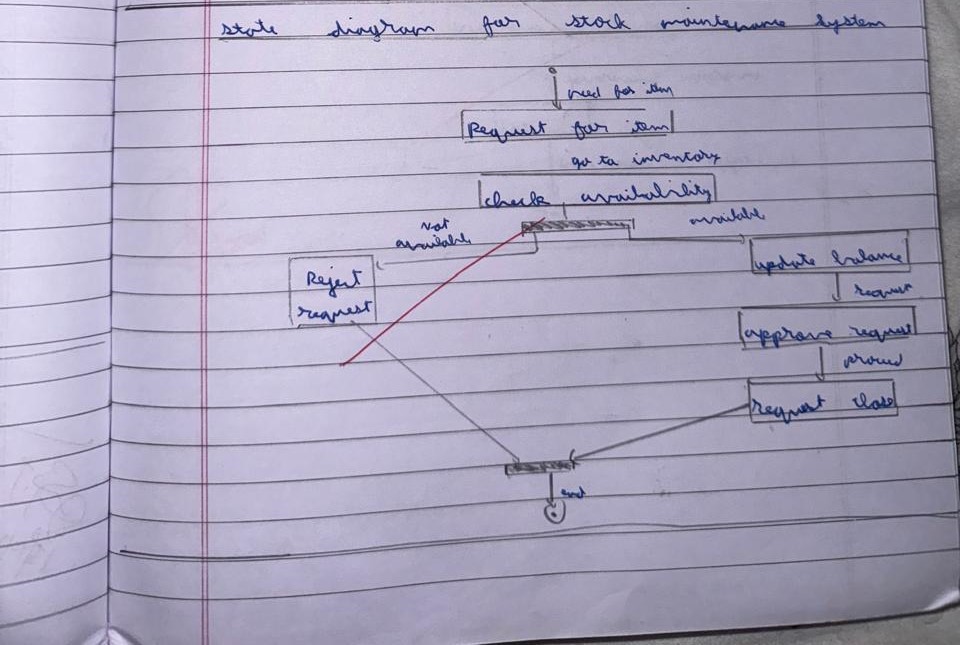 state diagram for stock maintenance system
need for item
Request for item
go to inventory
check availability
Not available
available
Reject request
update balance
request
approve request
proceed
request close
end